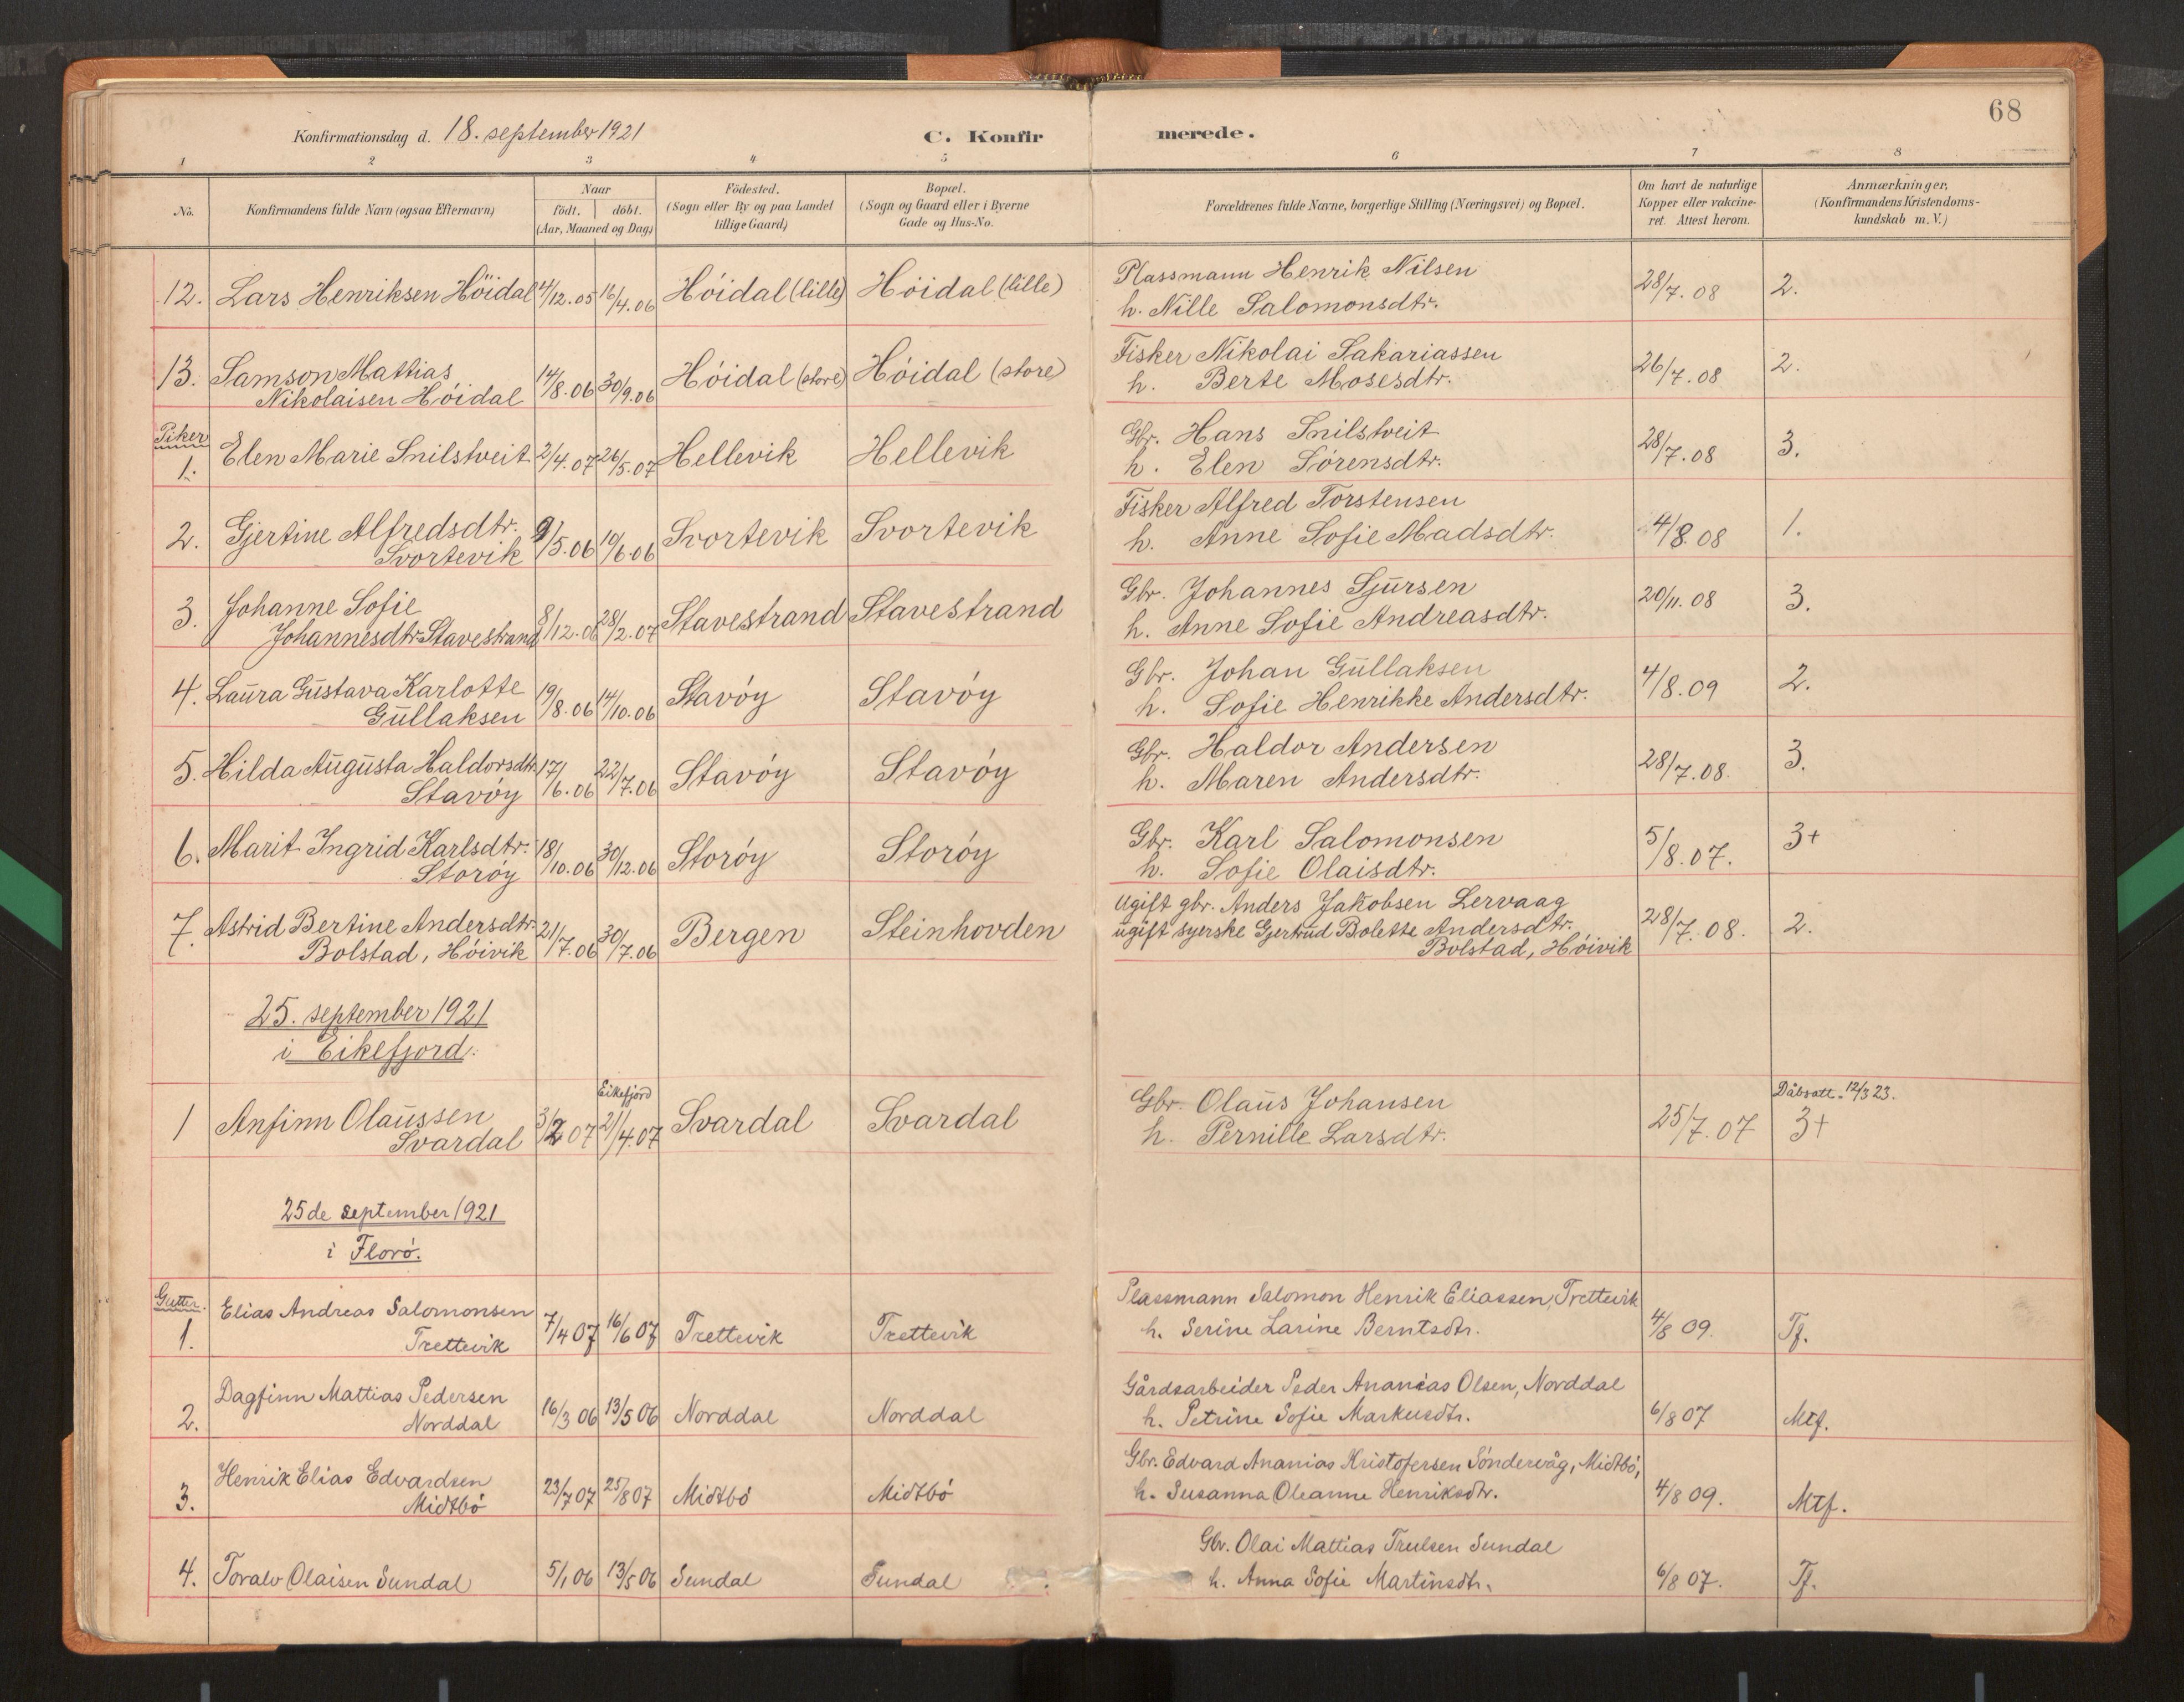 68
Konfirmationsdag d. 18. september 1921 C. Konfirmerede.
1 2 3 4 5 6 7 8
No. Konfirmandens fulde Navn (ogsaa Efternavn) Naar födt. döbt. (Aar, Maaned og Dag) Födested. (Sogn eller By og paa Landet tillige Gaard) Bopæl. (Sogn og Gaard eller i Byerne Gade og Hus-No. Forældrenes fulde Navne, borgerlige Stilling (Næringsvei) og Bopæl. Om havt de naturlige Kopper eller vakcineret. Attest herom. Anmærkninger. (Konfirmandens Kristendomskundskab m. V.)
12. Lars Henriksen Höidal 4/12.05 16/4.06 Höidal (lille) Höidal (lille) Plassmann Henrik Nilsen 28/7.08 2.
h. Nille Salomonsdtr.
13. Samson Mattias 14/8.06 30/9.06 Höidal (store) Höidal (store) Fisker Nikolai Sakariassen 26/7.08 2.
Nikolaisen Höidal h. Berte Mosesdtr.
Piker
1. Elen Marie Snilstveit 2/4.07 26/5.07 Hellevik Hellevik Gbr. Hans Snilstveit 28/7.08 3.
h. Elen Sörensdtr.
2. Gjertine Alfredsdtr. 9/5.06 10/6.06 Svortevik Svortevik Fisker Alfred Torstensen 4/8.08 1.
Svortevik h. Anne Sofie Madsdtr.
3. Johanne Sofie 8/12.06 28/2.07 Stavestrand Stavestrand Gbr. Johannes Sjursen 20/11.08 3.
Johannesdtr. Stavestrand h. Anne Sofie Andreasdtr.
4. Laura Gustava Karlotte 19/8.06 14/10.06 Stavöy Stavöy Gbr. Johan Gullaksen 4/8.09 2.
Gullaksen h. Sofie Henrikke Andersdtr.
5. Hilda Augusta Haldorsdtr. 17/6.06 22/7.06 Stavöy Stavöy Gbr. Haldor Andersen 28/7.08. 3.
Stavöy h. Maren Andersdtr.
6. Marit Ingrid Karlsdtr. 18/10.06 30/12.06 Storöy Storöy Gbr. Karl Salomonsen 5/8.07. 3+
Storöy h. Sofie Olaisdtr.
7. Astrid Bertine Andersdtr. 21/7.06 30/7.06 Bergen Steinhovden Ugift gbr. Anders Jakobsen Lervaag 28/7.08. 2.
Bolstad, Höivik ugift syerske Gjertrud Bolette Andersdtr.
Bolstad, Höivik
25. september 1921
i Eikefjord.
Eikefjord Dåbsatt. 12/3 23.
1 Anfinn Olaussen 3/2 07 21/4.07 Svardal Svardal Gbr. Olaus Johansen 25/7.07 3+
Svardal h. Pernille Larsdtr.
25de september 1921
i Florö.
Gutter.
1. Elias Andreas Salomonsen 7/4 07 16/6 07 Trettevik Trettevik Plassmann Salomon Henrik Eliassen, Trettevik 4/8 09. Tf.
Trettevik h. Serine Larine Berntsdtr.
2. Dagfinn Mattias Pedersen 16/3 06 13/5 06 Norddal Norddal Gårdsarbeider Peder Ananias Olsen, Norddal 6/8 07 Mtf.
Norddal h. Petrine Sofie Markusdtr.
3. Henrik Elias Edvardsen 23/7 07 25/8 07 Midtbö Midtbö Gbr. Edvard Ananias Kristofersen Söndervåg, Midtbö, 4/8 09. Mtf.
Midtbö h. Susanna Oleanne Henriksdtr.
4. Toralv Olaisen Sundal 5/1 06 13/5 06 Sundal Sundal Gbr. Olai Mattias Trulsen Sundal 6/8 07. Tf.
h. Anna Sofie Martinsdtr.